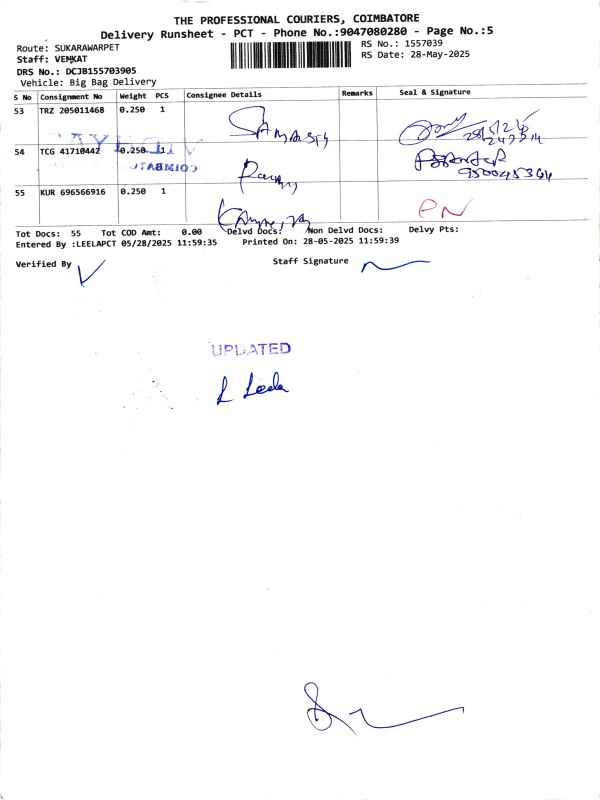 THE PROFESSIONAL COURIERS, COIMBATORE
Delivery Runsheet - PCT - Phone No.:9047080280 - Page No.:5
Route: SUKARAWARPET
RS No.: 1557039
Staff: VEMKAT
RS Date: 28-May-2025
DRS No.: DCJB155703905
Vehicle: Big Bag Delivery
S No Consignment No Weight PCS Consignee Details Remarks Seal & Signature
53 TRZ 205011468 0.250 1
54 TCG 41710442 0.250 1
COIMBATO
9500245364
55 KUR 696566916 0.250 1
PN
Tot Docs: 55 Tot COD Amt: 0.00 Delvd Docs: Non Delvd Docs: Delvy Pts:
Entered By :LEELAPCT 05/28/2025 11:59:35 Printed On: 28-05-2025 11:59:39
Verified By Staff Signature
UPDATED
L Leela